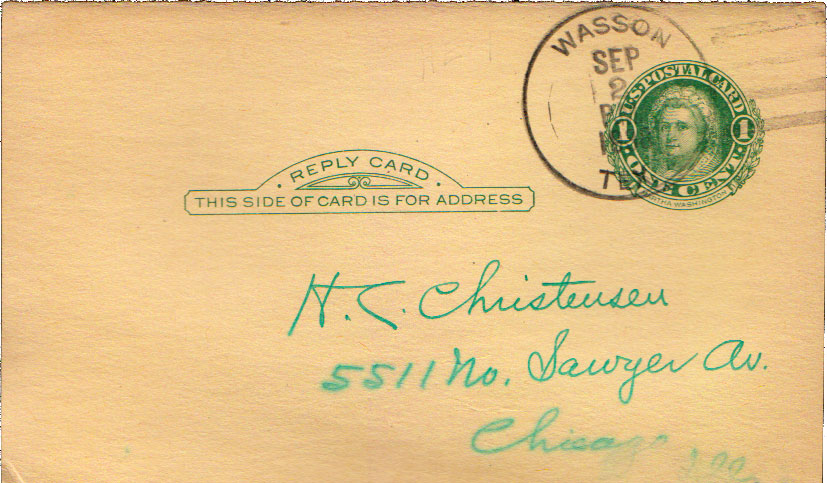 WASSON
SEP
2
TEX
U.S. POSTAL CARD
1 1
ONE CENT
MARTHA WASHINGTON
REPLY CARD
THIS SIDE OF CARD IS FOR ADDRESS
H. C. Christensen
5511 No. Sawyer Av.
Chicago Ill